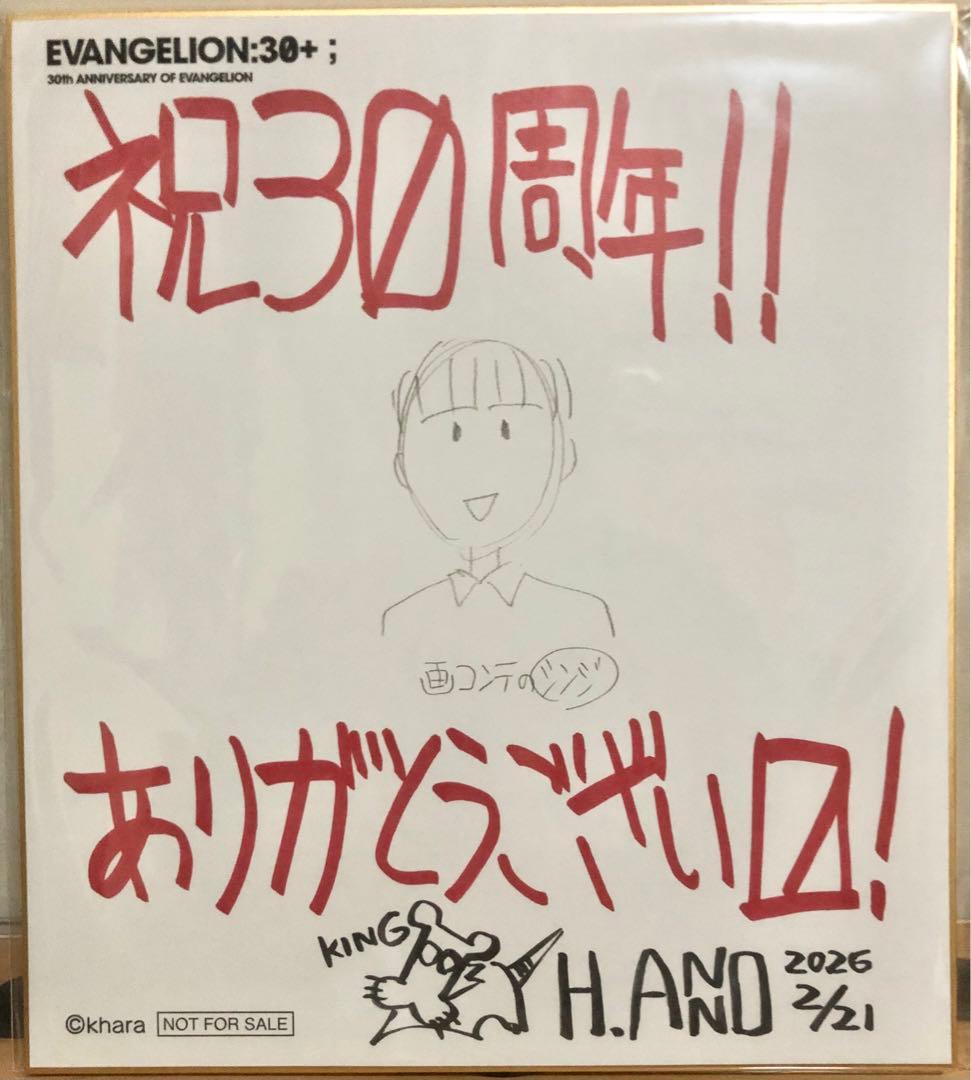 EVANGELION:30+;
30th ANNIVERSARY OF EVANGELION
祝30周年!!
画コンテのシンジ
ありがとうございマ!
KING
H.ANNO
2026
2/21
©khara NOT FOR SALE